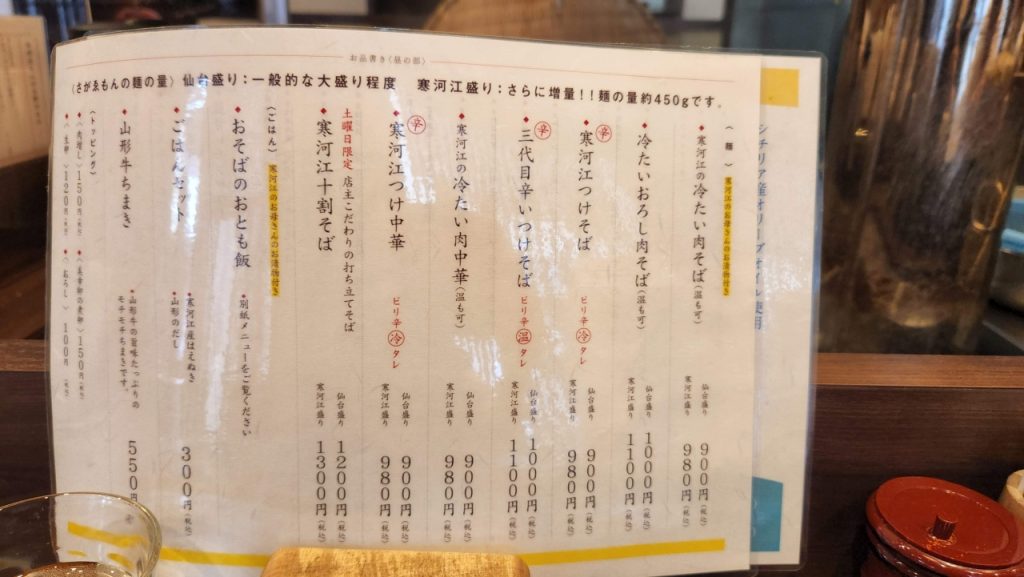 お品書き〈昼の部〉
〈さがゑもんの麺の量〉仙台盛り：一般的な大盛り程度　寒河江盛り：さらに増量！！麺の量約450gです。
〈麺〉寒河江のお母さんのお漬物付き
寒河江の冷たい肉そば（温も可）
仙台盛り 900円（税込）
寒河江盛り 980円（税込）
冷たいおろし肉そば（温も可）
仙台盛り 1000円（税込）
寒河江盛り 1100円（税込）
辛 寒河江つけそば ピリ辛冷タレ
仙台盛り 900円（税込）
寒河江盛り 980円（税込）
辛 三代目辛いつけそば ピリ辛温タレ
仙台盛り 1000円（税込）
寒河江盛り 1100円（税込）
寒河江の冷たい肉中華（温も可）
仙台盛り 900円（税込）
寒河江盛り 980円（税込）
辛 寒河江つけ中華 ピリ辛冷タレ
仙台盛り 900円（税込）
寒河江盛り 980円（税込）
土曜日限定 店主こだわりの打ち立てそば
寒河江十割そば
仙台盛り 1200円（税込）
寒河江盛り 1300円（税込）
〈ごはん〉寒河江のお母さんのお漬物付き
おそばのおとも飯
・別紙メニューをご覧ください
ごはんセット
・寒河江産はえぬき
・山形のだし
300円（税込）
山形牛ちまき
・山形牛の旨味たっぷりの
モチモチちまきです。
550円
〈トッピング〉
〈肉増し〉150円（税込）
〈生卵〉120円（税込）
150円（税込）
〈おろし〉100円（税込）
シチリア産オリーブオイル使用